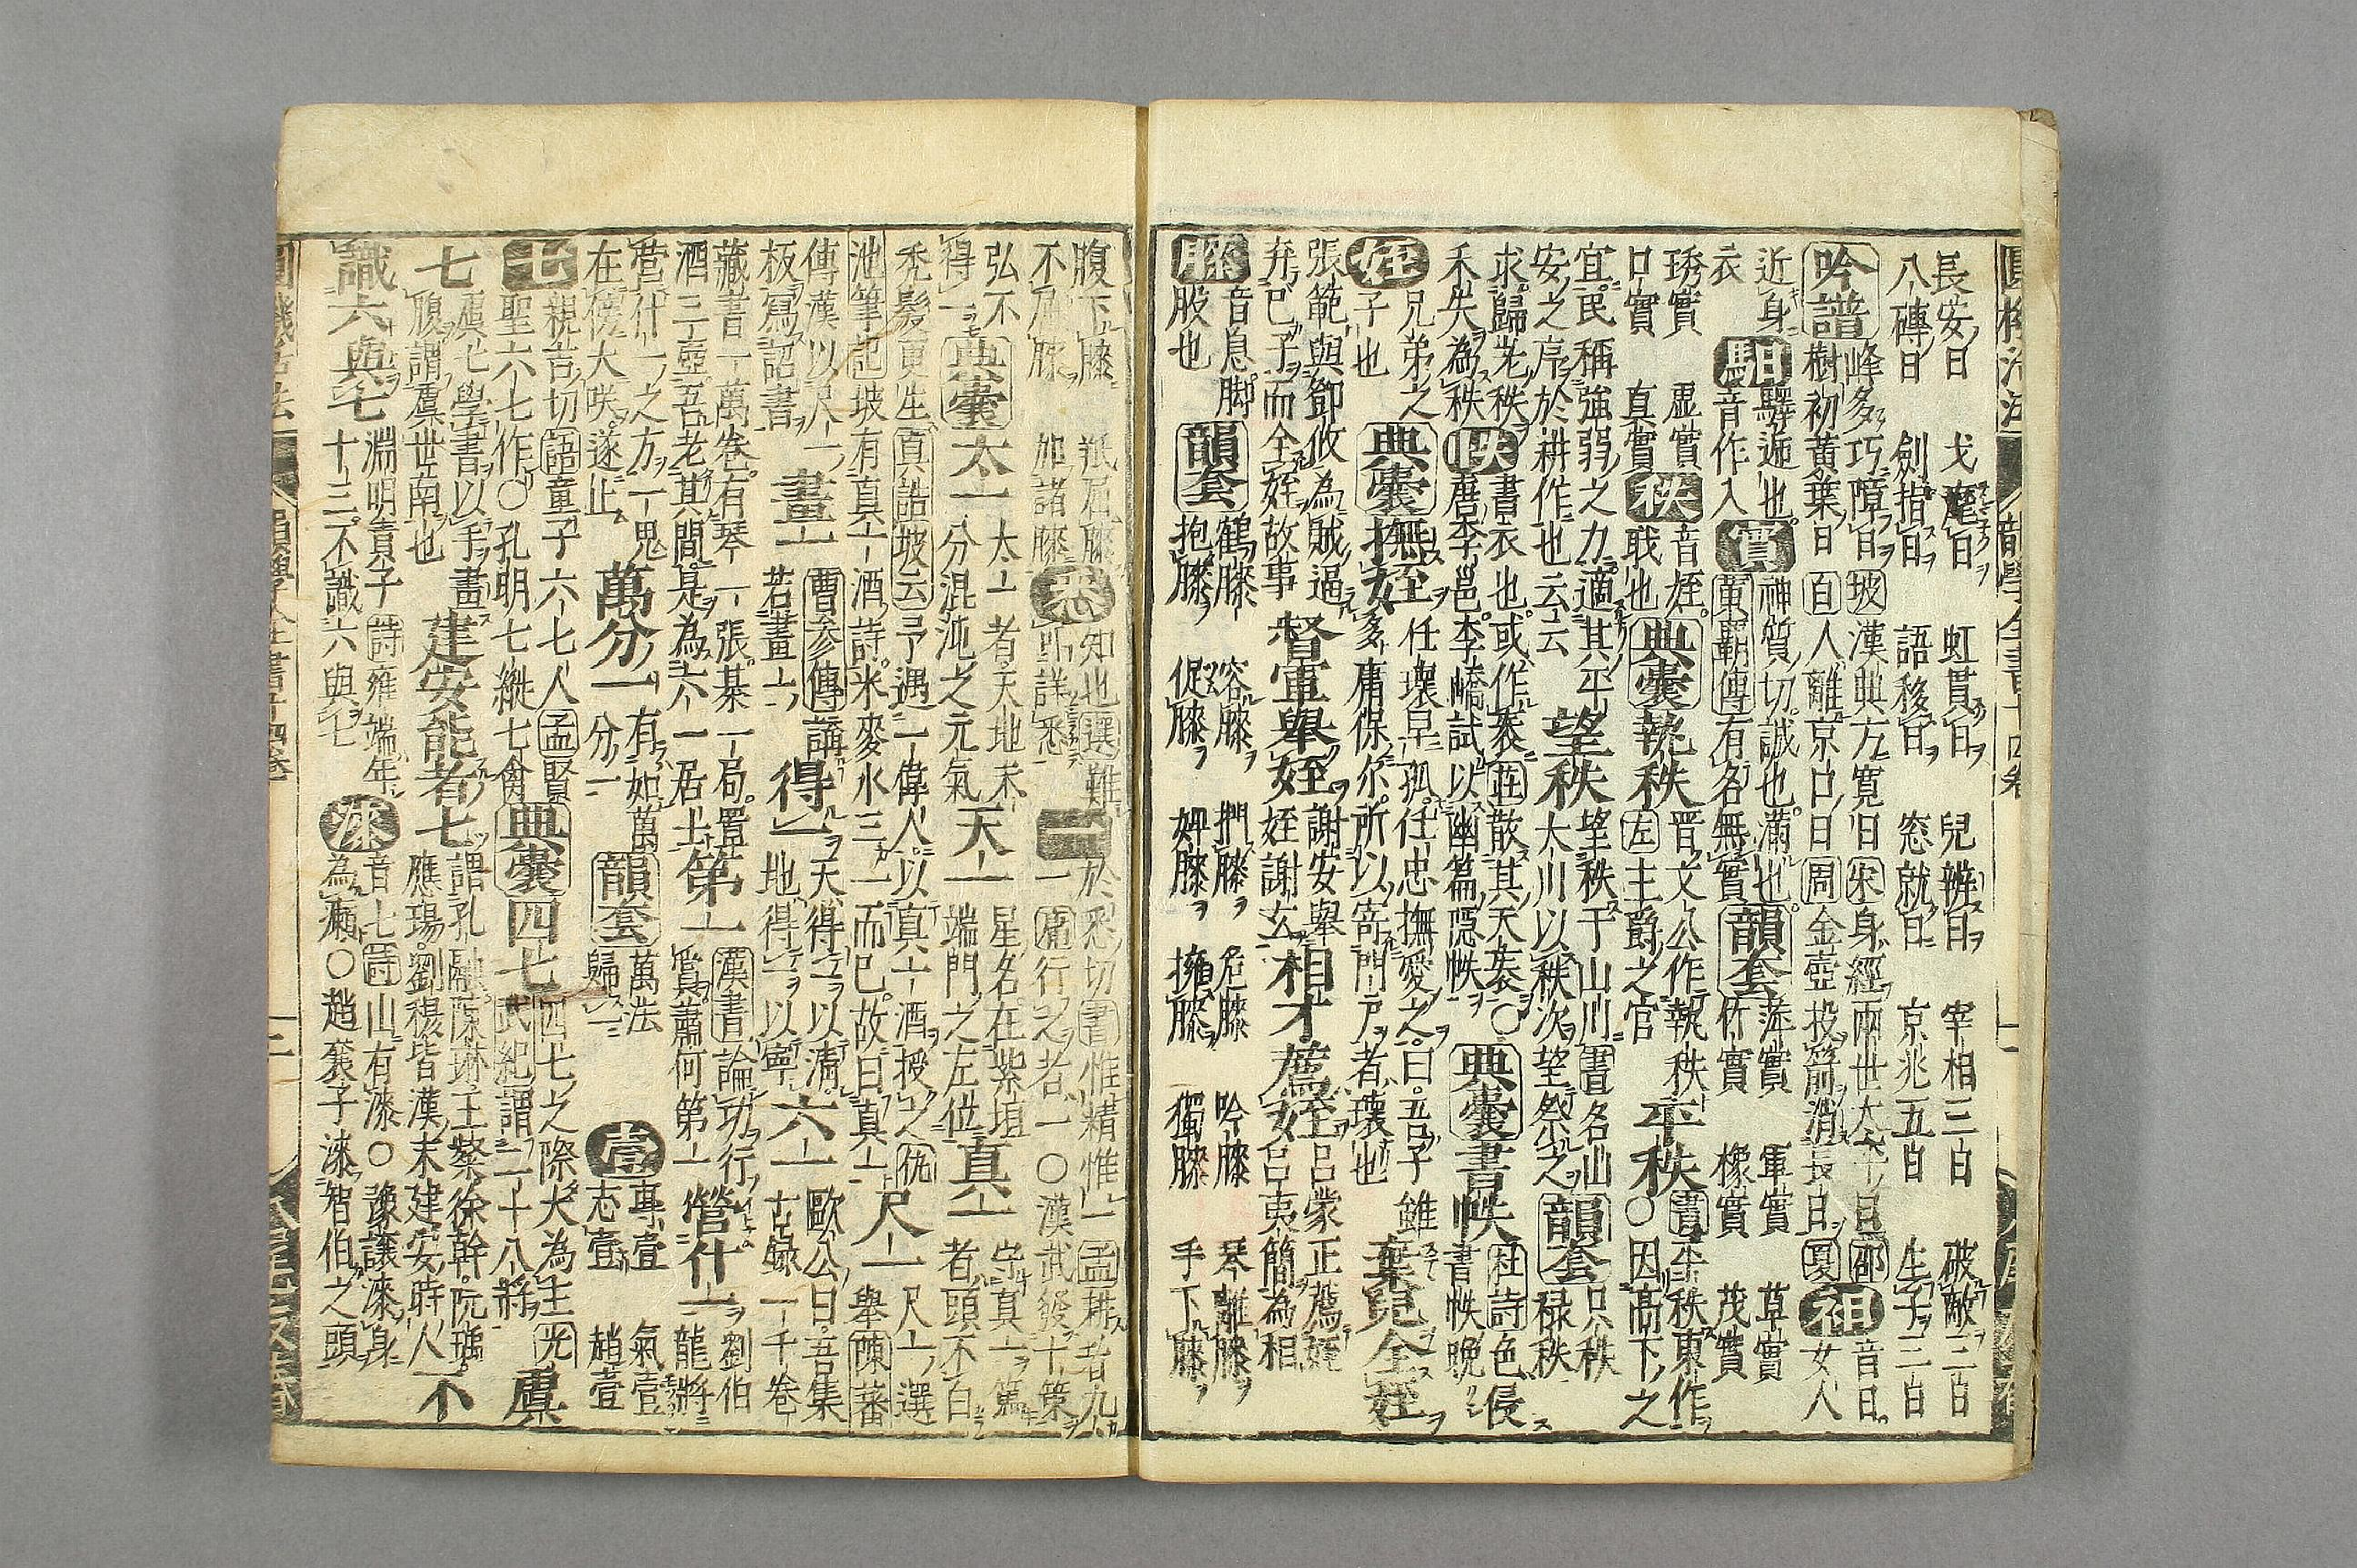 長安日　戈麾日　虹貫日　兒辨日　宰相三日　破敵三日
八磚日　劍指日　語移日　窓就日　京兆五日　生子三日
吟譜　峰多巧障日　坡　漢典方寛旧　宋　身經兩世太平日　邵
樹初黃葉日　百　人離京口日　周　金壺投箭消長日　夏　袒　音日女人
近身衣　馹　驛逓也音作入　實　神質切誠也滿也　黃霸傳　有名無實　韻套　萍實　軍實　草實
竹實　橡實　茂實
琇實　虛實　秩　音姪　典囊　執秩　晋文公作執秩　平秩　書　平秩東作
口實　真實　戢也　左　主爵之官　○因高下之
宜民稱強弱之力適其平　望秩　望秩于山川　書　名山　韻套　只秩
安之序於耕作也云云　大川以秩次望祭之　祿秩
求歸茫秩　帙　書衣也或作袠　莊　散其天袠○　典囊　書帙　杜詩　色侵
禾失為秩　唐李邕李嶠試以幽篇隱帙　書帙晩
姪　兄弟之子也　典囊　撫姪　任壞早孤任忠撫愛之曰吾子雖　棄兒全姪
多庸保尔所以寄門戶者壞也
張範與鄧攸為賊逼　督軍舉姪　謝安舉　相才薦姪　呂蒙正薦姪
弃已子而全姪故事　姪謝玄　呂夷簡為相
膝　音息脚　韻套　鶴膝　容膝　捫膝　危膝　吟膝　琴離膝
股也　抱膝　促膝　婢膝　擁膝　獨膝　手下膝
腹下膝　羝屈膝　悉　知也　選　難　一　於悉切　書　惟精惟一　孟　耕者九一
不屈膝　加諸膝　詳悉　一　庸　行之者一○漢武發十策
弘不　典囊　太一　太一者天地未　天一　星名在紫垣　真一　守真一篤
得一　分混沌之元氣　端門之左位　者頭不白
禿髮更生　真誥　坡云　予遇一偉人以真一酒授之　仇　尺一　尺一選
池筆記　坡有真一酒詩米麥水三一而已故曰真一　舉　陳蕃
傳漢以尺一　畫一　曹参傳　講　得一　天得一以清　六一　歐公曰吾集
板寫詔書　若畫一　地得一以寧　古錄一千卷
藏書一萬卷有琴一張棊一局置　第一　漢書　論功行　營什一　劉伯
酒三壺吾老其間是為六一居士　賞蕭何第一　龍將
營什一之方一鬼　萬分一　有如萬　韻套　萬法　壹　專壹　氣壹
在傍大咲遂止　分一　歸一　志壹　趙壹
七　親吉切　語　童子六七人　孟　賢　典囊　四七　四七之際火為主　光　虞
聖六七作○孔明七縱七禽　武紀　謂二十八將
七　虞七學書以手畫　建安能者七　謂孔融陳琳王粲徐幹阮瑀　不
腹謂虞世南也　應瑒劉楊皆漢末建安時人
識六與七　淵明責子　詩　雍端年　漆　音七　詩　山有漆○豫讓漆身
十三不識六與七　為癩○趙襄子漆智伯之頭